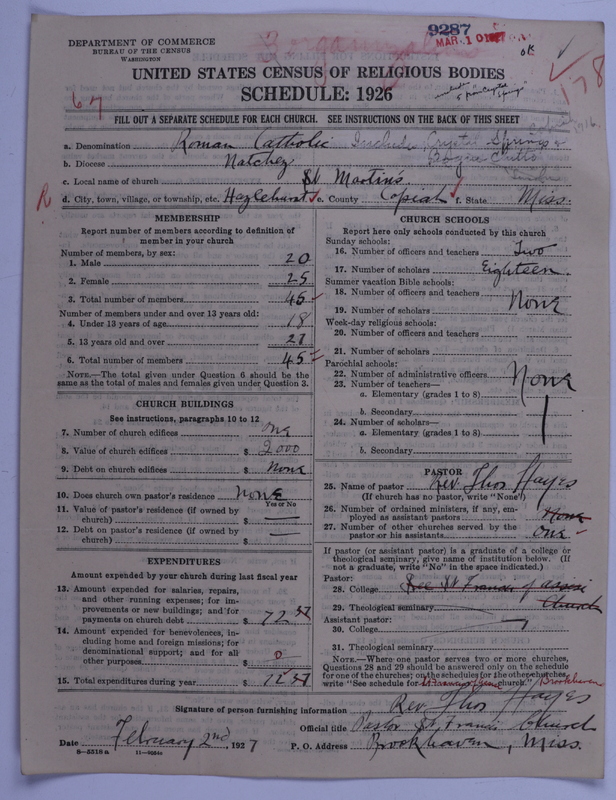 9287
DEPARTMENT OF COMMERCE
BUREAU OF THE CENSUS
WASHINGTON
MAR. 10 1927
OK
178
UNITED STATES CENSUS OF RELIGIOUS BODIES
SCHEDULE: 1926
67
FILL OUT A SEPARATE SCHEDULE FOR EACH CHURCH. SEE INSTRUCTIONS ON THE BACK OF THIS SHEET
a. Denomination Roman Catholic Includes Crystal Springs &
b. Diocese Natchez
c. Local name of church St Martin's
R d. City, town, village, or township, etc. Hazlehurst e. County Copiah f. State Miss.
MEMBERSHIP
Report number of members according to definition of
member in your church
Number of members, by sex:
1. Male 20
2. Female 25
3. Total number of members 45
Number of members under and over 13 years old:
4. Under 13 years of age 18
5. 13 years old and over 27
6. Total number of members 45
NOTE.—The total given under Question 6 should be the
same as the total of males and females given under Question 3.
CHURCH BUILDINGS
See instructions, paragraphs 10 to 12
7. Number of church edifices one
8. Value of church edifices $ 2000
9. Debt on church edifices $ none
10. Does church own pastor's residence none
Yes or No
11. Value of pastor's residence (if owned by
church) $ —
12. Debt on pastor's residence (if owned by
church) $ —
EXPENDITURES
Amount expended by your church during last fiscal year
13. Amount expended for salaries, repairs,
and other running expenses; for im-
provements or new buildings; and for
payments on church debt $ 72 37
14. Amount expended for benevolences, in-
cluding home and foreign missions; for
denominational support; and for all
other purposes $ 0
15. Total expenditures during year $ 72 37
CHURCH SCHOOLS
Report here only schools conducted by this church
Sunday schools:
16. Number of officers and teachers Two
17. Number of scholars Eighteen
Summer vacation Bible schools:
18. Number of officers and teachers
19. Number of scholars None
Week-day religious schools:
20. Number of officers and teachers
21. Number of scholars
Parochial schools:
22. Number of administrative officers None
23. Number of teachers—
a. Elementary (grades 1 to 8)
b. Secondary
24. Number of scholars—
a. Elementary (grades 1 to 8)
b. Secondary
PASTOR
25. Name of pastor Rev Thos Hayes
(If church has no pastor, write "None")
26. Number of ordained ministers, if any, em-
ployed as assistant pastors None
27. Number of other churches served by the
pastor or his assistants one
If pastor (or assistant pastor) is a graduate of a college or
theological seminary, give name of institution below. (If
not a graduate, write "No" in the space indicated.)
Pastor:
28. College See St Francis of assisi
29. Theological seminary Church
Assistant pastor:
30. College
31. Theological seminary
NOTE.—Where one pastor serves two or more churches,
Questions 28 and 29 should be answered only on the schedule
for one of the churches; on the schedules for the other churches,
write "See schedule for church." Brookhaven
Signature of person furnishing information Rev Thos Hayes
Official title Pastor St. Francis Church
Date February 2nd, 1927 P. O. Address Brookhaven, Miss.
8—5318a 11—9064